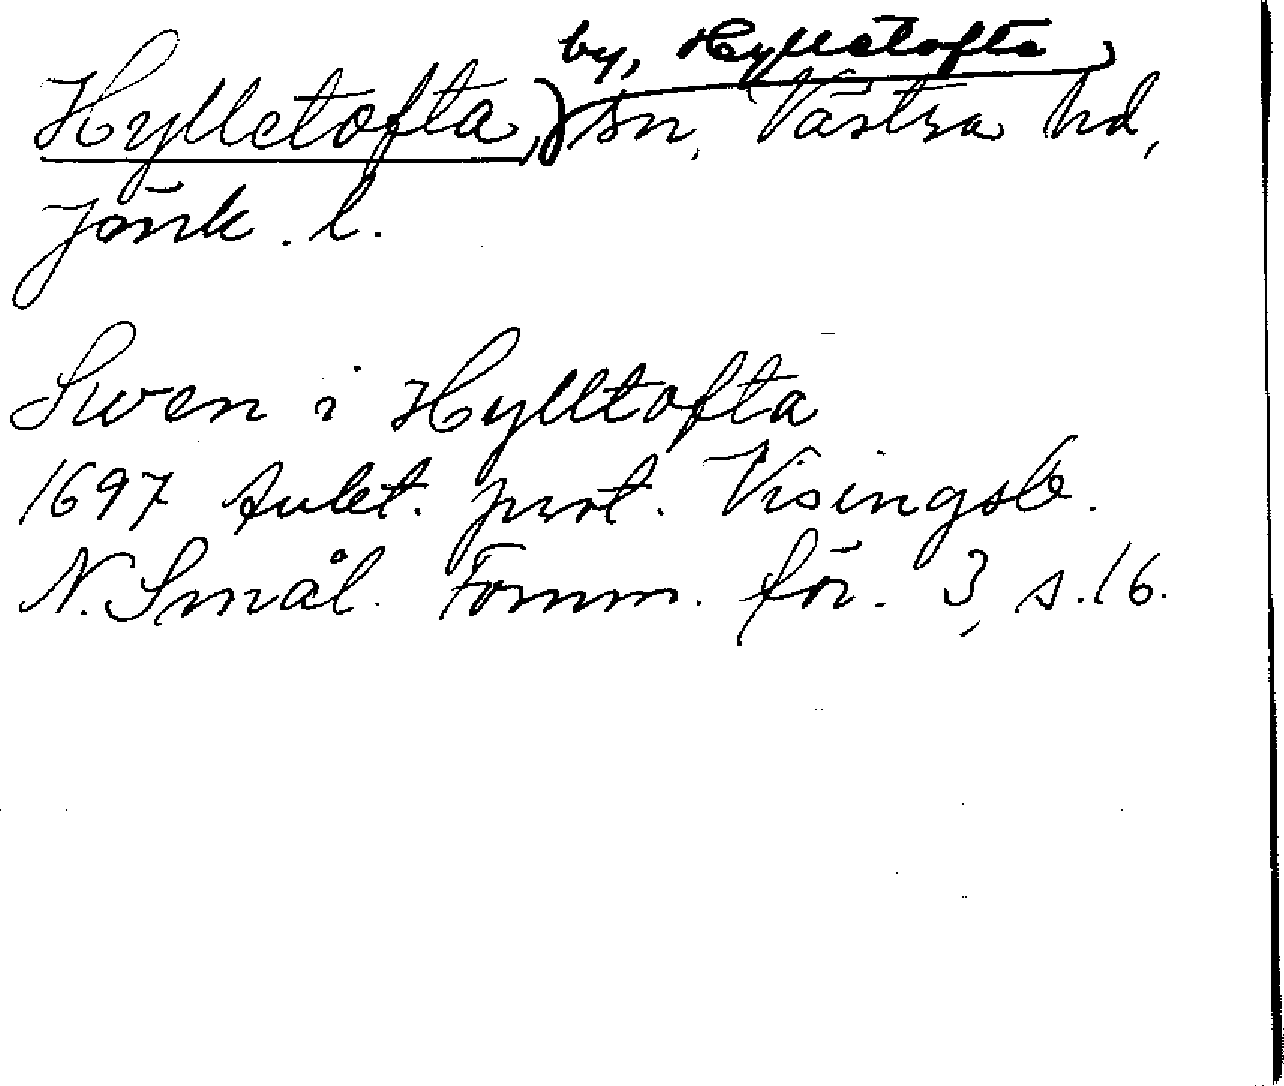 by, Hylletofta
Hylletofta, sn, Västra hd,
Jönk. l.
Swen i Hylltofta
1697 Aulet. prot. Visingsb.
N. Smål. Fornm. för. 3, s. 16.